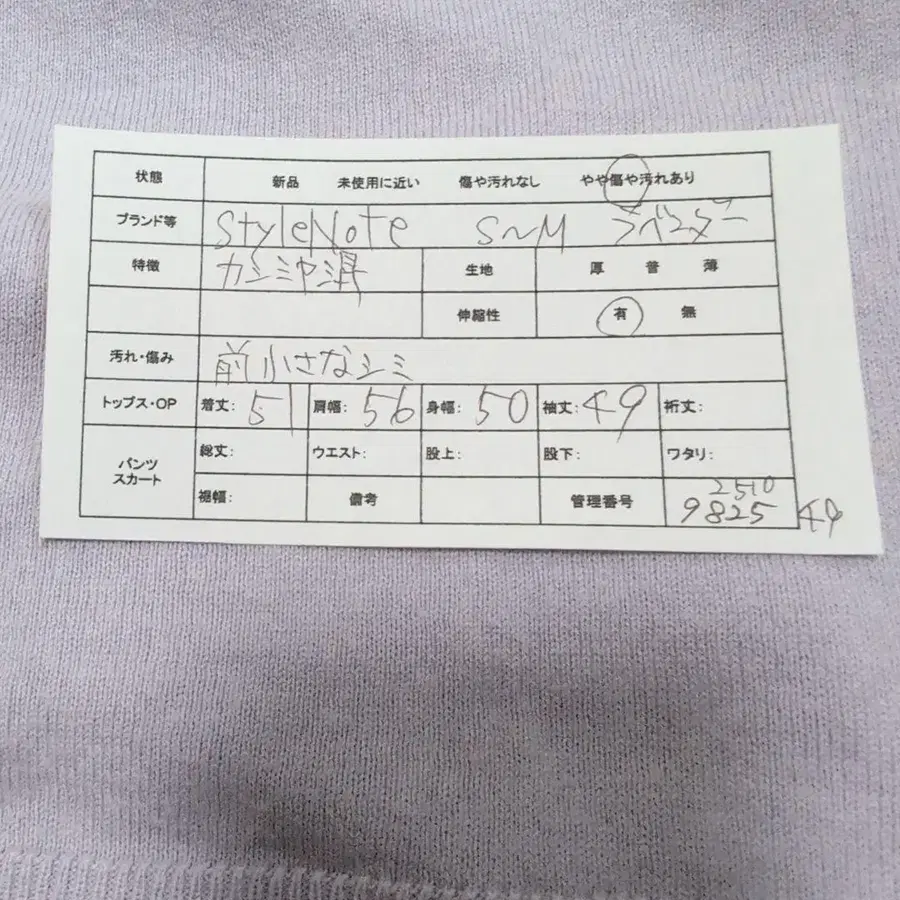 状態 新品 未使用に近い 傷や汚れなし やや傷や汚れあり
ブランド等 StyleNote S~M ラベンダー
特徴 カシミヤ混 生地 厚 普 薄
伸縮性 有 無
汚れ・傷み 前小さなシミ
トップス・OP 着丈: 51 肩幅: 56 身幅: 50 袖丈: 49 裄丈:
パンツ スカート 総丈: ウエスト: 股上: 股下: ワタリ:
裾幅: 備考 管理番号 2510
9825 49